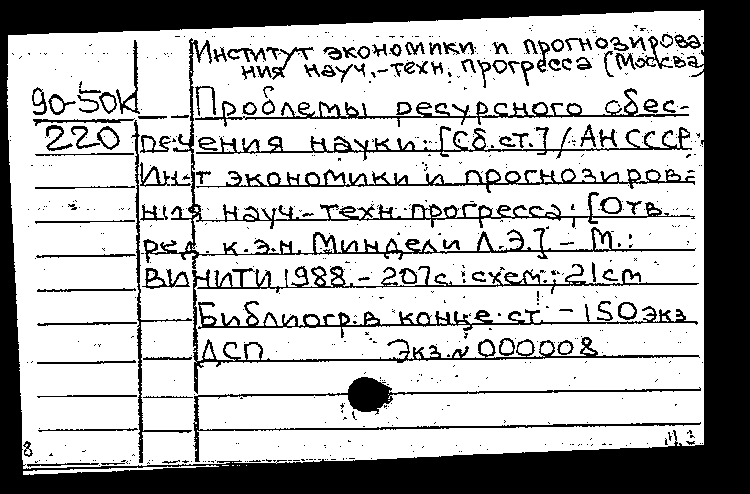 Институт экономики и прогнозирова
ния науч.-техн. прогресса (Москва)
90-50К
220
Проблемы ресурсного обес-
печения науки: [Сб. ст.] / АН СССР
Ин-т экономики и прогнозирова-
ния науч.-техн. прогресса; [Отв.
ред. к.э.н. Миндели Л.Э.]. - М.:
ВИНИТИ, 1988. - 207с.: схем.; 21см
Библиогр. в конце ст. - 150 экз
ДСП Экз. № 000008
8